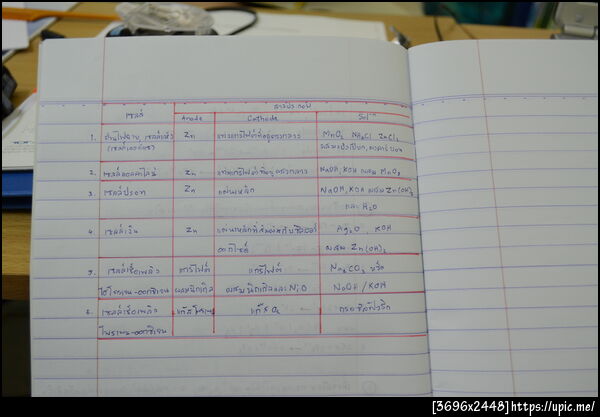 สารประกอบ
เซลล์ Anode Cathode Solⁿ
1. ถ่านไฟฉาย, เซลล์แห้ง Zn แท่งแกรไฟต์ที่อยู่ตรงกลาง MnO₂ NH₄Cl ZnCl₂
ผสมแป้งเปียก, ผงคาร์บอน
2. เซลล์แอลคาไลน์ Zn แท่งแกรไฟต์ที่อยู่ตรงกลาง NaOH, KOH ผสม MnO₂
3. เซลล์ปรอท Zn แผ่นเหล็ก NaOH, KOH ผสม Zn(OH)₂
และ H₂O
4. เซลล์เงิน Zn แผ่นเหล็กที่สัมผัสกับซิลเวอร์ Ag₂O, KOH
ออกไซด์ ผสม Zn(OH)₂
5. เซลล์เชื้อเพลิง แกรไฟต์ แกรไฟต์ Na₂CO₃ หรือ
ไฮโดรเจน-ออกซิเจน ผสมนิกเกิล ผสมนิกเกิลและ NiO NaOH / KOH
6. เซลล์เชื้อเพลิง แก๊สโพรเพน แก๊ส O₂ กรดซัลฟิวริก
โพรเพน-ออกซิเจน
[3696x2448]https://upic.me/